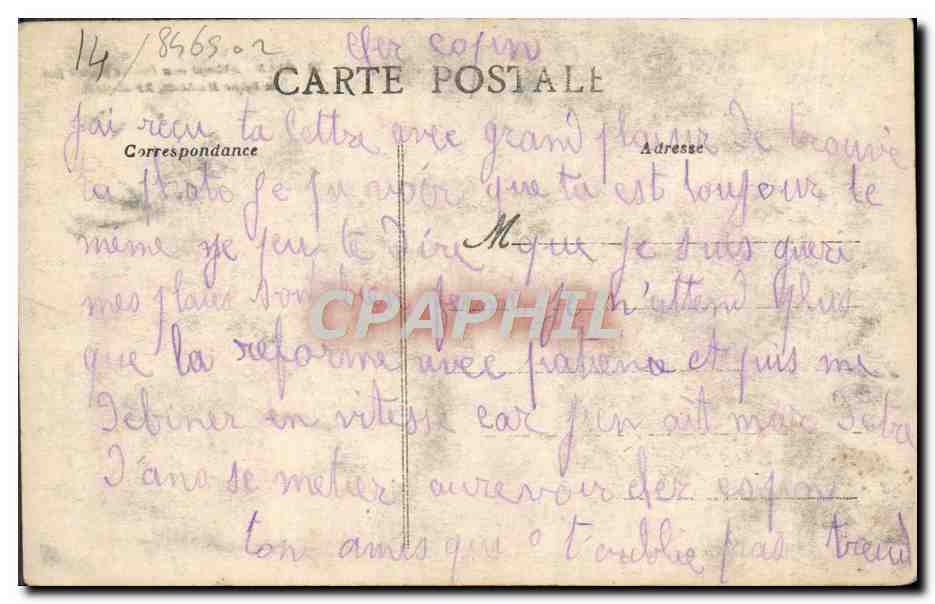 14/8469.02
Cher copin
CARTE POSTALE
j'ai reçu ta lettre avec grand plaisir de trouvé
Correspondance
Adresse
ta photo je pu voir que ta est toujour le
même je peu te dire que je suis gueri
M
mes plaies sont je n'attend plus
CPAPHIL
que la reforme avec patience et puis me
debiner en vitesse car j'en ait mare d'etre
d'ans se metier aurevoir cher copin
ton ames qui t'oublie pas